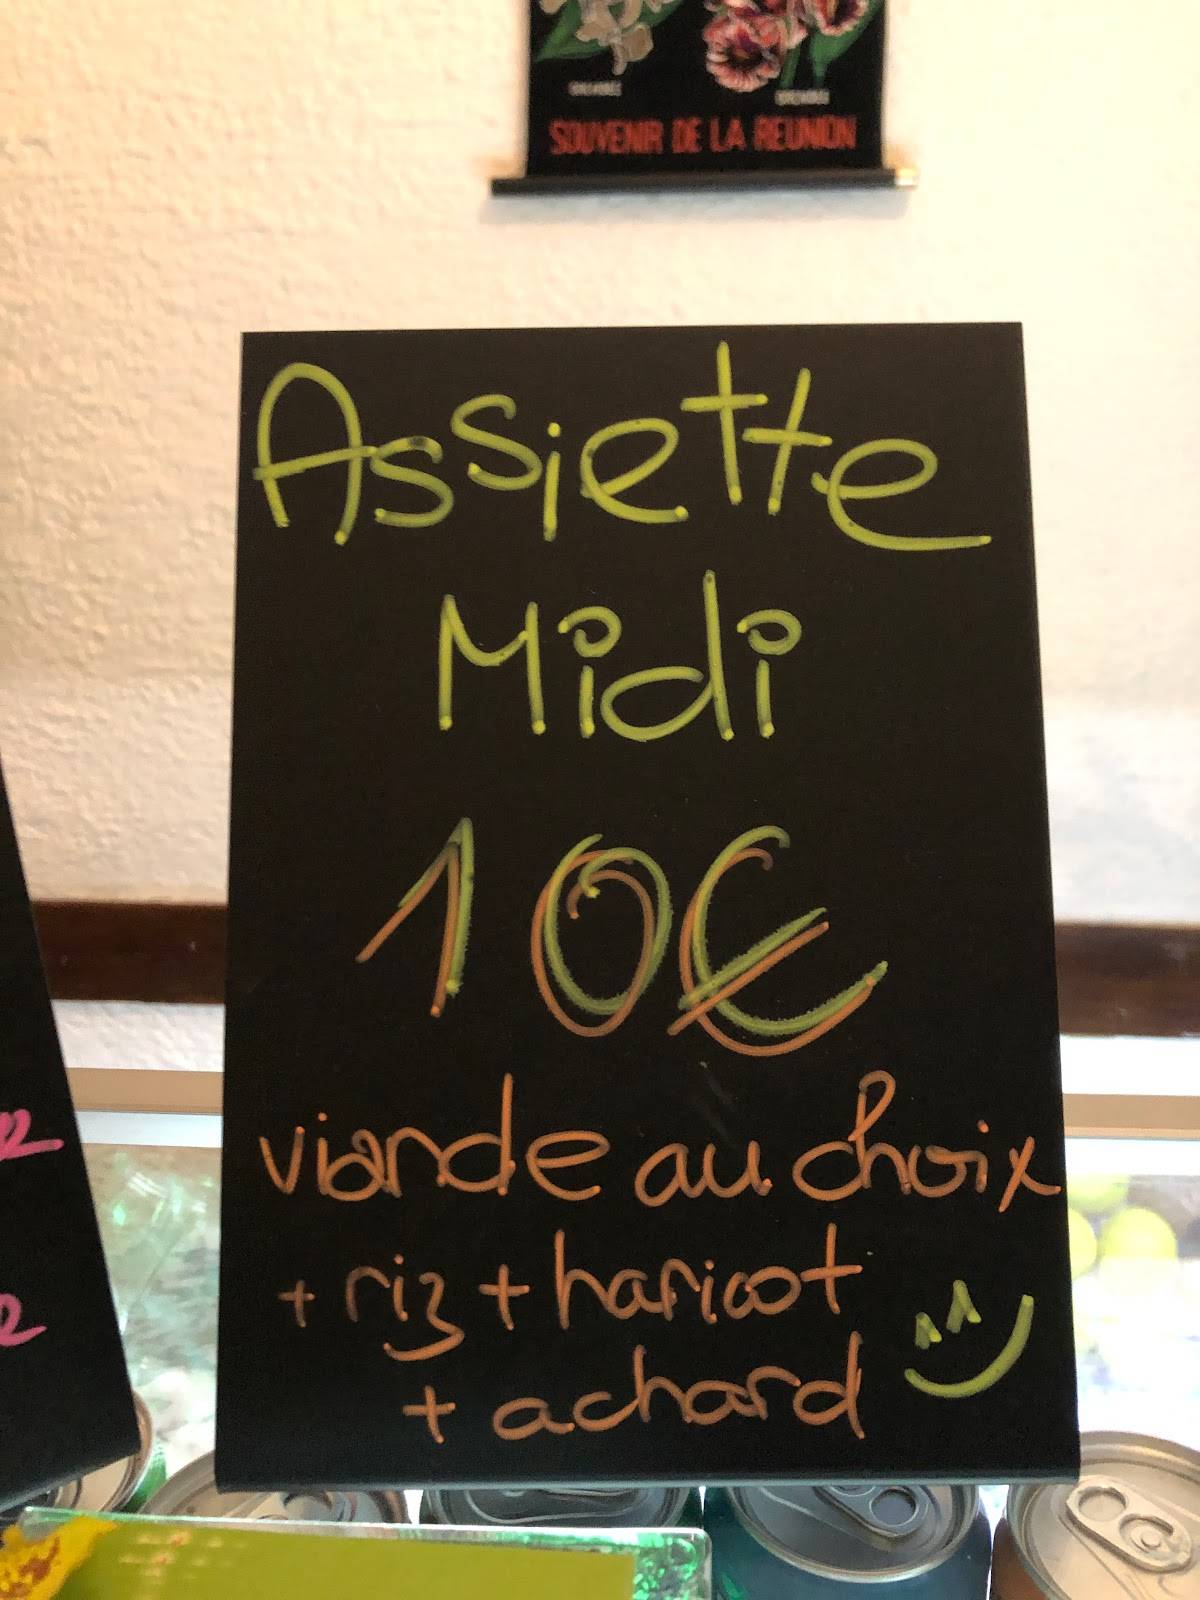 SOUVENIR DE LA REUNION
Assiette
Midi
10€
viande au choix
+ riz + haricot
+ achard